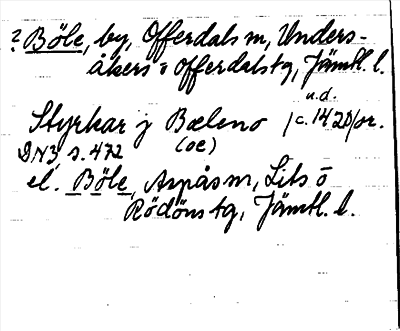 ? Böle, by, Offerdals sn, Unders-
åkers o Offerdals tg, Jämtl. l.
u.d.
Styrkar j Bæleno /c. 1420/or.
DN3, s. 472 (oe)
el. Böle, Aspås sn, Lits o
Rödöns tg, Jämtl. l.